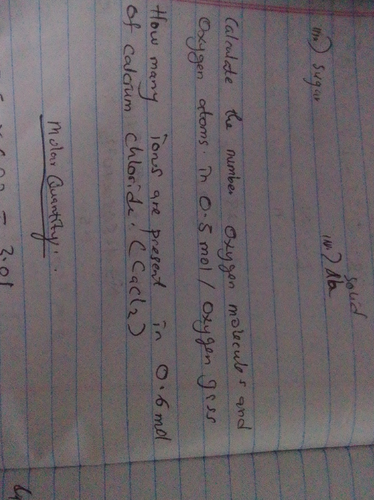 solid
iii) sugar
Calculate the number oxygen molecules and
Oxygen atoms in 0.5 mol / Oxygen gass
How many ions are present in 0.6 mol
of calcium chloride. (CaCl2)
Molar Quantity:.
= 3.01